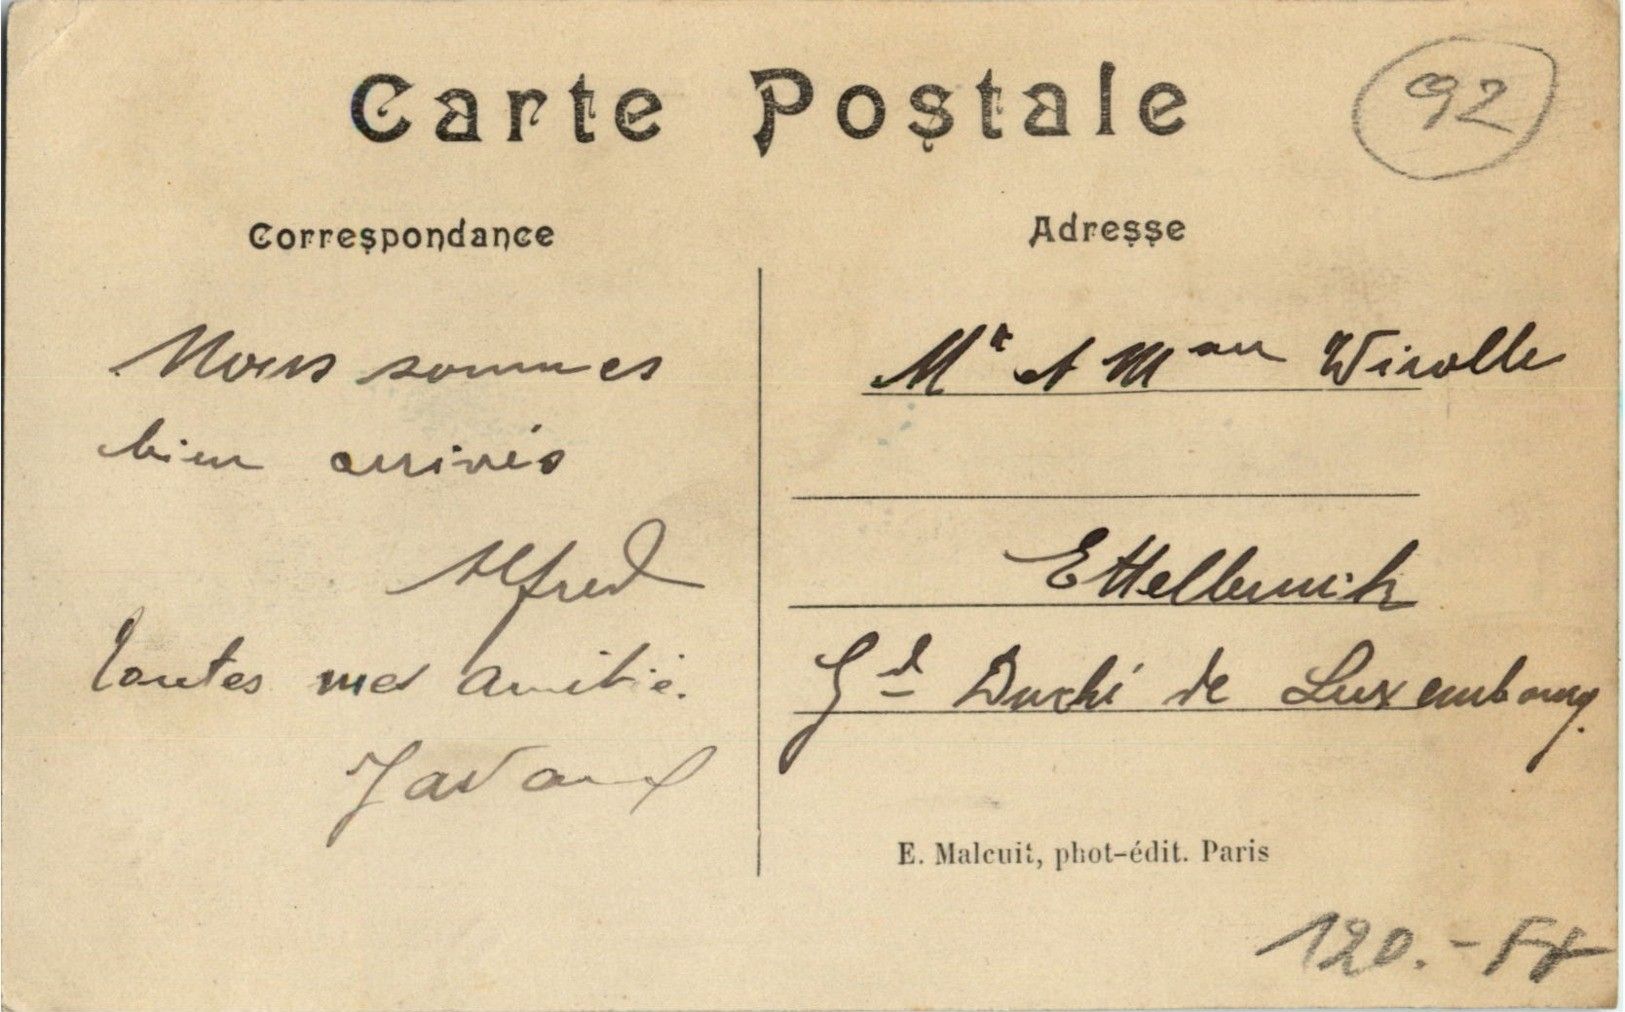 Carte Postale
92
Correspondance
Adresse
Nous sommes
bien arrivés
Alfred
Toutes mes amitié.
Mr et Mme
Ettelbruck
Gd Duché de Luxembourg.
E. Malcuit, phot-édit. Paris
120.- Fr